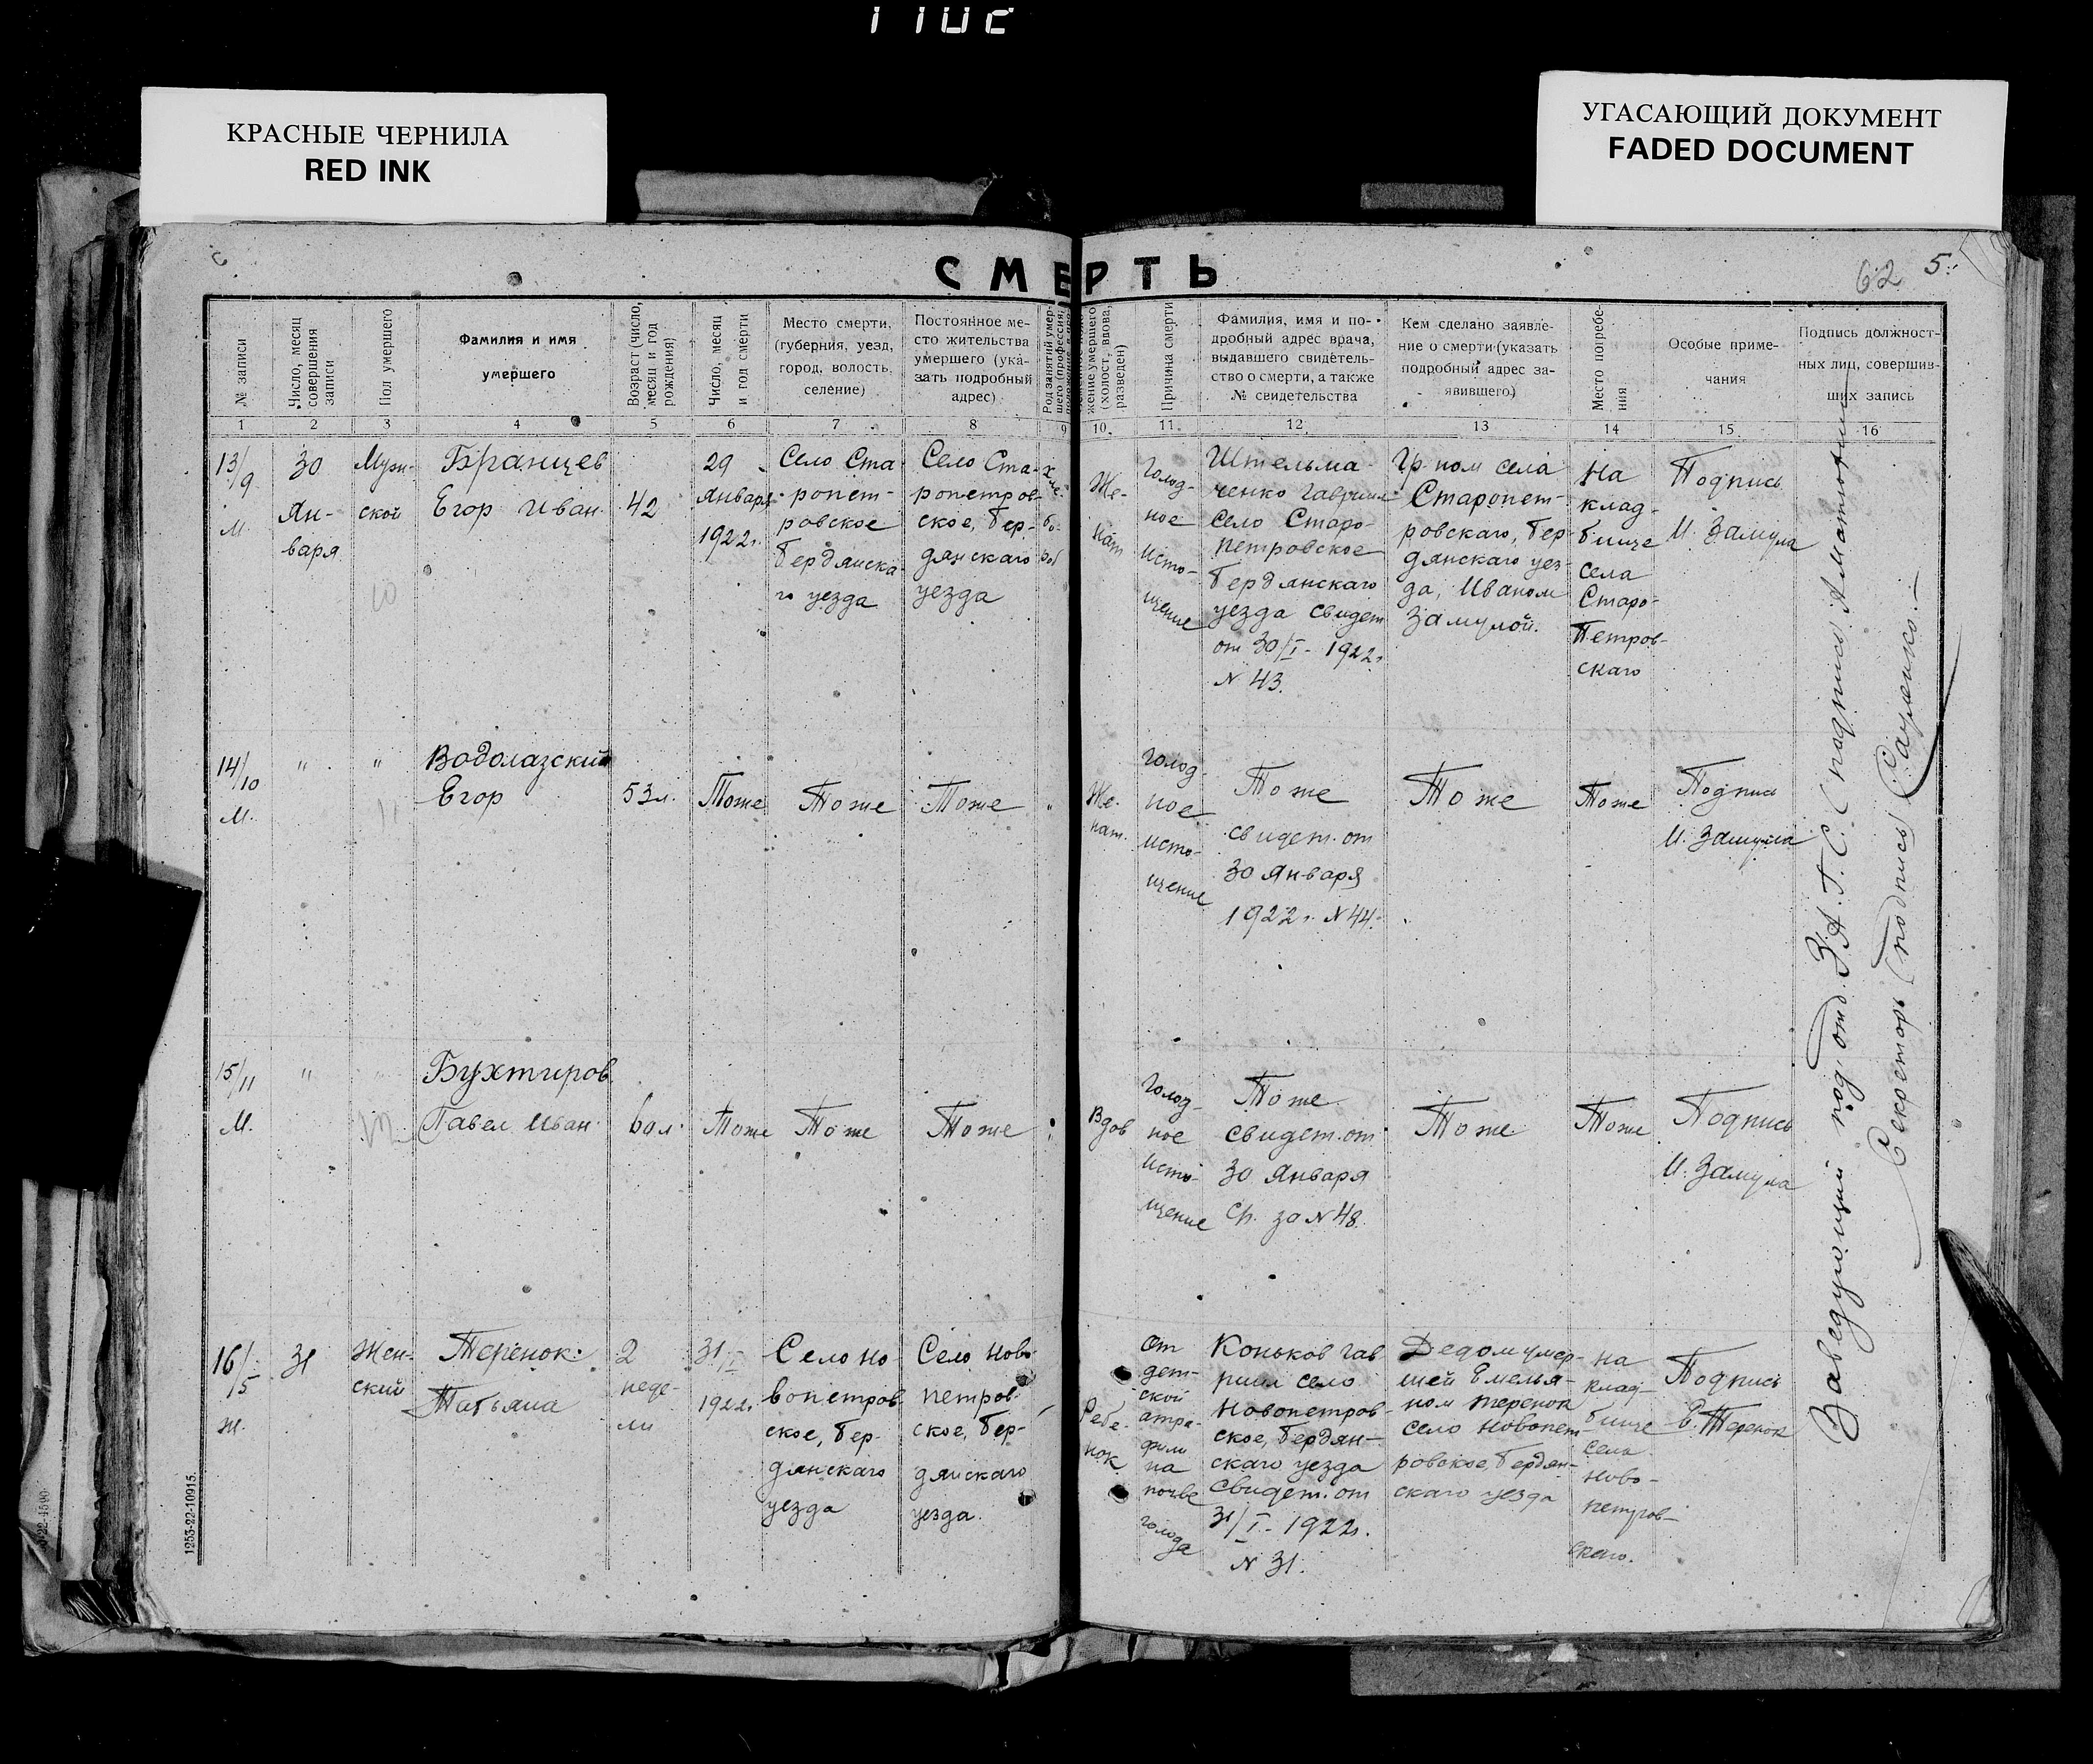 1102
КРАСНЫЕ ЧЕРНИЛА
RED INK
УГАСАЮЩИЙ ДОКУМЕНТ
FADED DOCUMENT
СМЕРТЬ
62 5
№ записи
Число, месяц
совершения
записи
Пол умершего
Фамилия и имя
умершего
Возраст (число,
месяц и год
рождения)
Число, месяц
и год смерти
Место смерти,
(губерния, уезд,
город, волость,
селение)
Постоянное ме-
сто жительства
умершего (ука-
зать подробный
адрес)
Род занятий умер-
шего (профессия,
жение умершего
(холост, вдова,
разведен)
Причина смерти
Фамилия, имя и по-
дробный адрес врача,
выдавшего свидетель-
ство о смерти, а также
№ свидетельства
Кем сделано заявле-
ние о смерти (указать
подробный адрес за-
явившего)
Место погребе-
ния
Особые приме-
чания
Подпись должност-
ных лиц, совершив-
ших запись
1 2 3 4 5 6 7 8 9 10 11 12 13 14 15 16
13/9
м.
30
Ян-
варя
Муж-
ской
10
Бранцев
Егор Иван.
42
29
Января
1922г.
Село Ста-
ропет-
ровское
Бердянска-
го уезда
Село Ста-
ропетров-
ское, Бер-
дянскаго
уезда
Же-
нат
Голод-
ное
исто-
щение
Штельма-
ченко Гавриил
село Старо-
петровское
Бердянскаго
уезда свидет
от 30/I - 1922г.
N 43.
Гр-ном села
Старопет-
ровскаго, Бер-
дянскаго уез-
да, Иваном
Замулой.
На
клад-
бище
села
Старо-
Петров-
скаго
Подпись
И. Замула
14/10
м.
" "
11
Водолазский
Егор
53л.
Тоже
Тоже
Тоже
"
Же-
нат.
Голод-
ное
исто-
щение
Тоже
свидет. от
30 Января
1922г. N 44.
Тоже
Тоже
Подпись
И. Замула
15/11
М.
" "
Бухтиров
Павел Иван.
60л.
Тоже
Тоже
Тоже
Вдов
Голод-
ное
исто-
щение
Тоже
свидет. от
30 Января
с/г. за N 48.
Тоже
Тоже
Подпись
И. Замула
16/5
ж.
31
Жен-
ский
Теренок
Татьяна
2
неде-
ли
31/I
1922г.
Село Но-
вопетров-
ское, Бер-
дянскаго
уезда
Село Ново-
петров-
ское, Бер-
дянскаго
уезда.
Ребе-
нок
От
дет-
ской
атро-
фии
на
почве
голода
Коньков Гав-
риил село
Новопетров-
ское, Бердян-
скаго уезда
Свидет. от
31/I - 1922г.
N 31.
Дедом умер-
шей Емелья-
ном Теренок
село Новопет-
ровское, Бердян-
скаго уезда
На
клад-
бище
села
Ново-
петров-
скаго.
Подпись
Е. Теренок
Заведующий подотд. З.А.Г.С. (подпись)
Секретарь (подпись)
1253-22-10915.